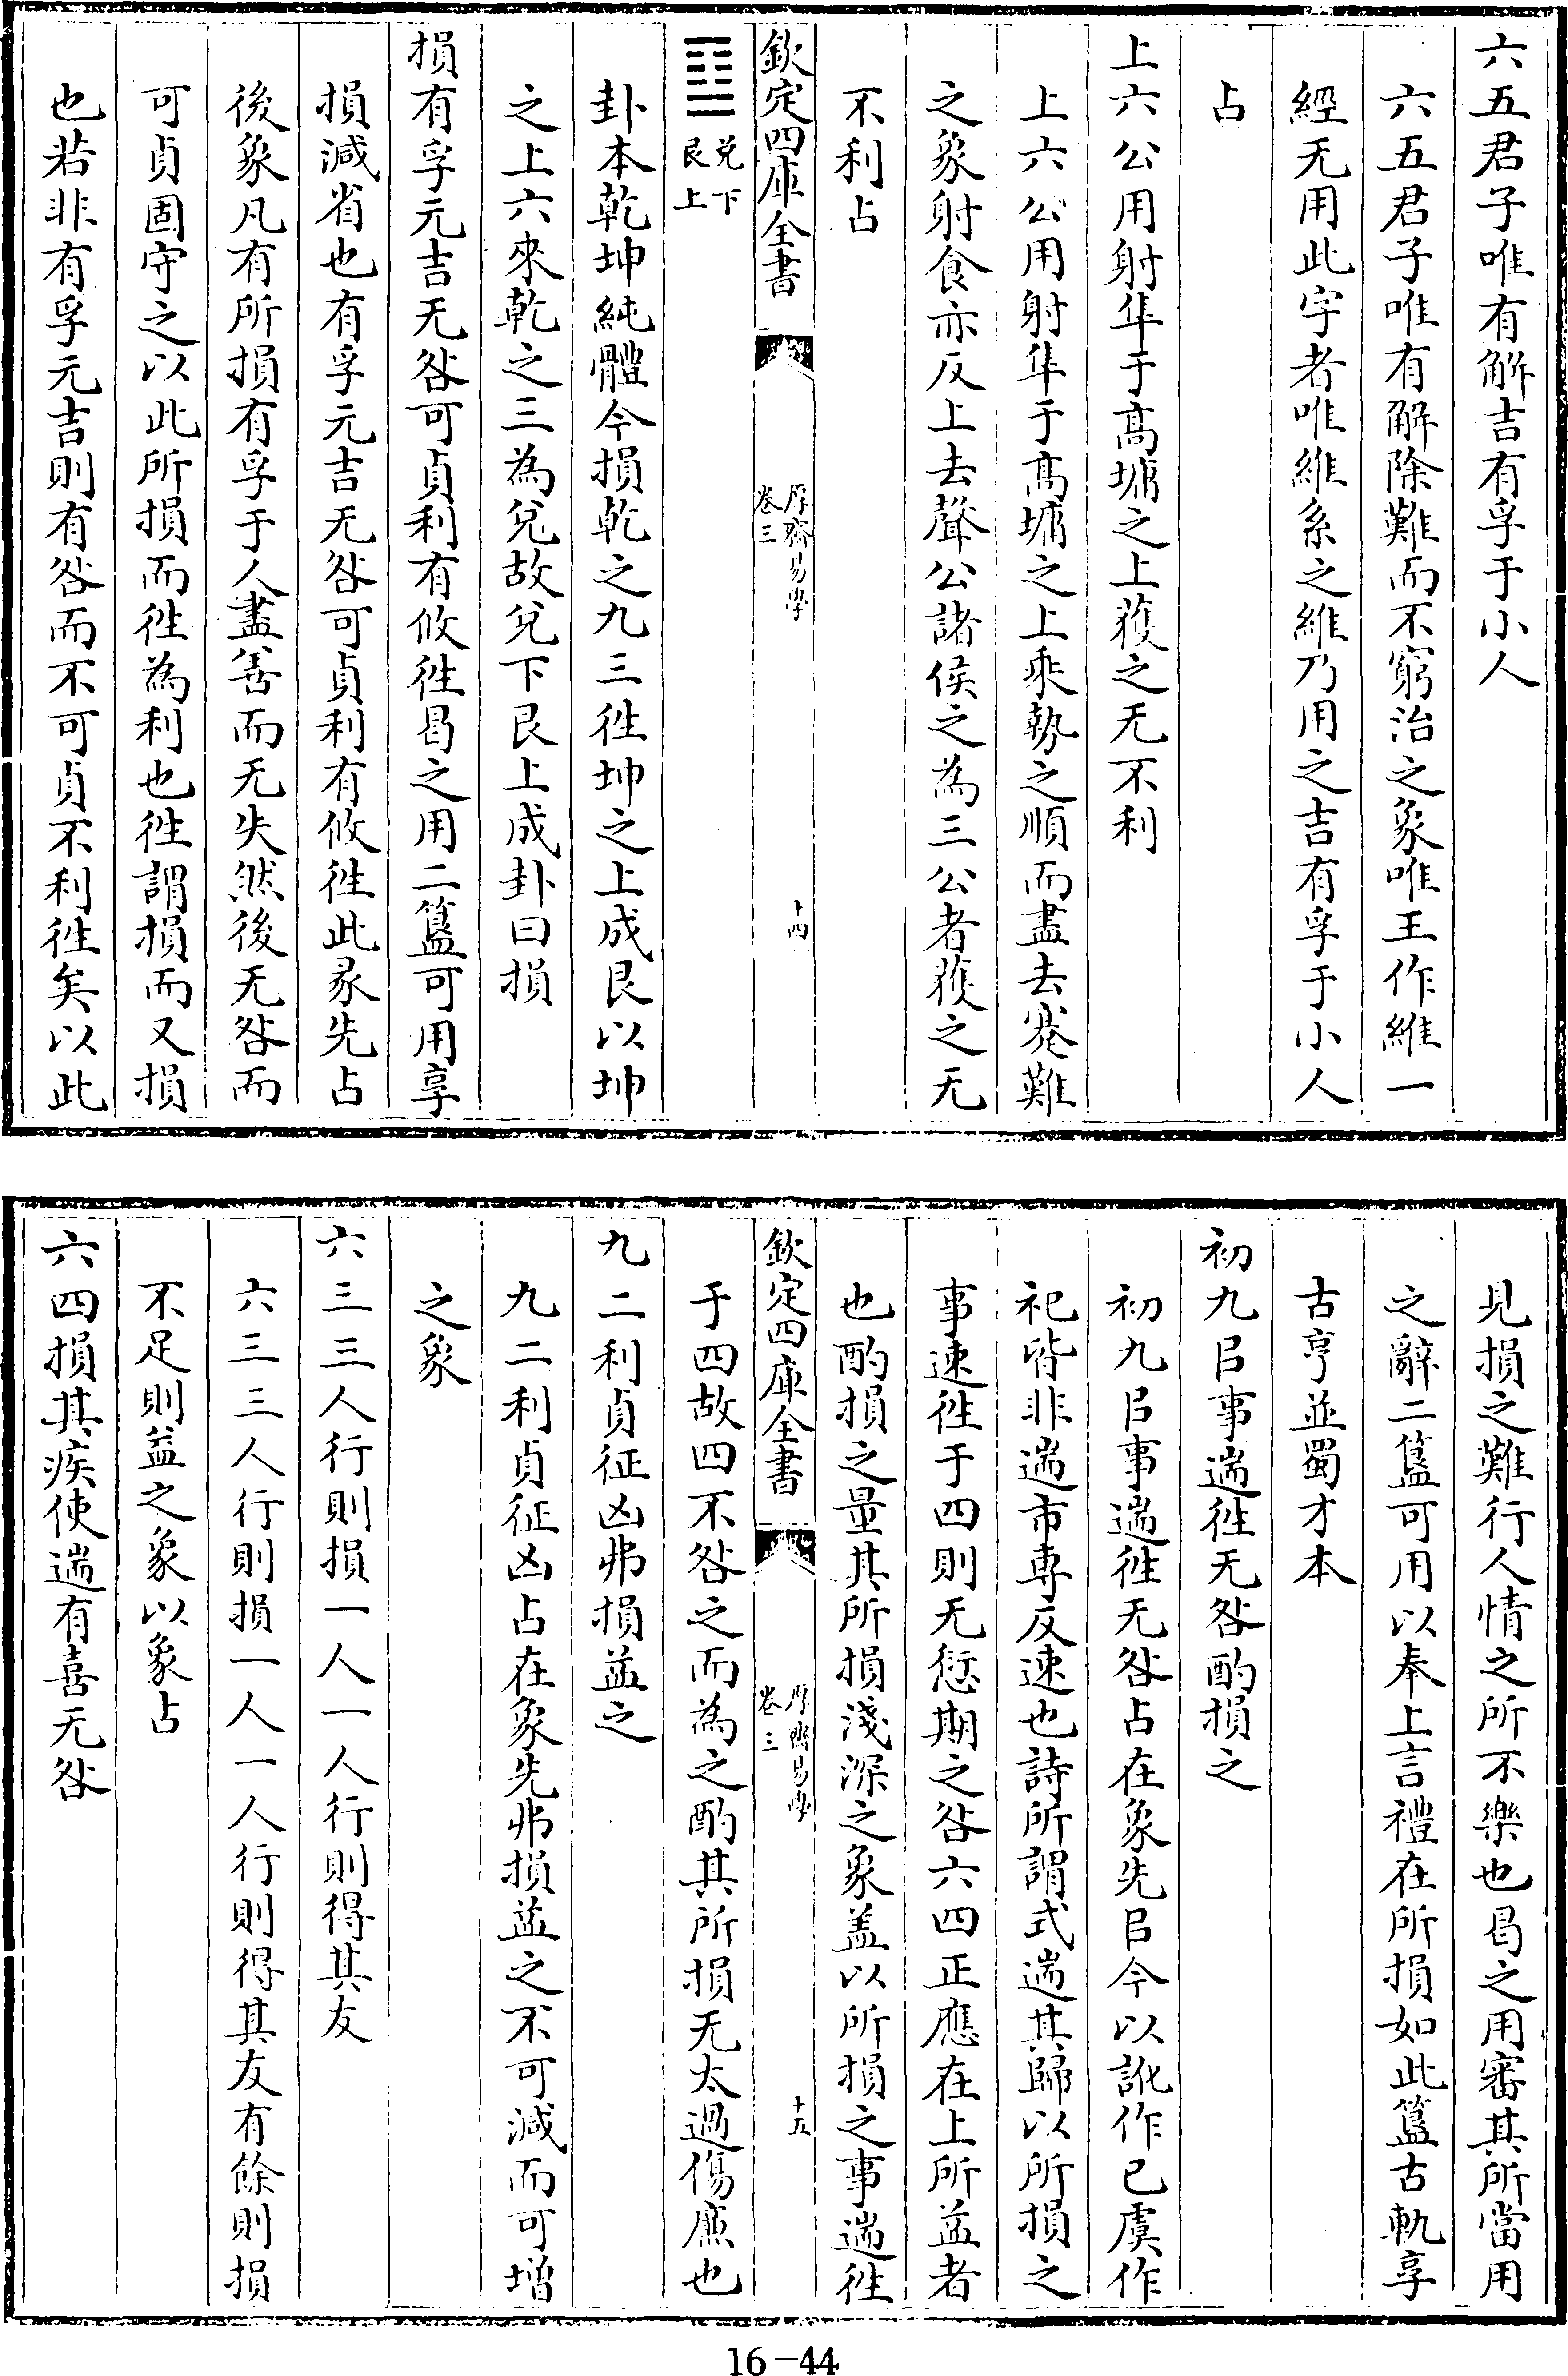 六五君子唯有解吉有孚于小人
六五君子唯有解除難而不窮治之象唯王作維一
經无用此字者唯維系之維乃用之吉有孚于小人
占
上六公用射隼于高墉之上獲之无不利
上六公用射隼于高墉之上乘勢之順而盡去蹇難
之象射食亦反上去聲公諸侯之為三公者獲之无
不利占
欽定四庫全書
厚齋易學
卷三
十四
䷨
兌下
艮上
卦本乾坤純體今損乾之九三徃坤之上成艮以坤
之上六來乾之三為兌故兌下艮上成卦曰損
損有孚元吉无咎可貞利有攸徃曷之用二簋可用享
損減省也有孚元吉无咎可貞利有攸徃此彖先占
後象凡有所損有孚于人盡善而无失然後无咎而
可貞固守之以此所損而徃為利也徃謂損而又損
也若非有孚元吉則有咎而不可貞不利徃矣以此
見損之難行人情之所不樂也曷之用審其所當用
之辭二簋可用以奉上言禮在所損如此簋古軌享
古亨並蜀才本
初九㠯事遄徃无咎酌損之
初九㠯事遄徃无咎占在象先㠯今以訛作已虞作
祀皆非遄市專反速也詩所謂式遄其歸以所損之
事速徃于四則无愆期之咎六四正應在上所益者
也酌損之量其所損淺深之象盖以所損之事遄徃
欽定四庫全書
厚齋易學
卷三
十五
于四故四不咎之而為之酌其所損无太過傷廉也
九二利貞征凶弗損益之
九二利貞征凶占在象先弗損益之不可減而可增
之象
六三三人行則損一人一人行則得其友
六三三人行則損一人一人行則得其友有餘則損
不足則益之象以象占
六四損其疾使遄有喜无咎
16-44